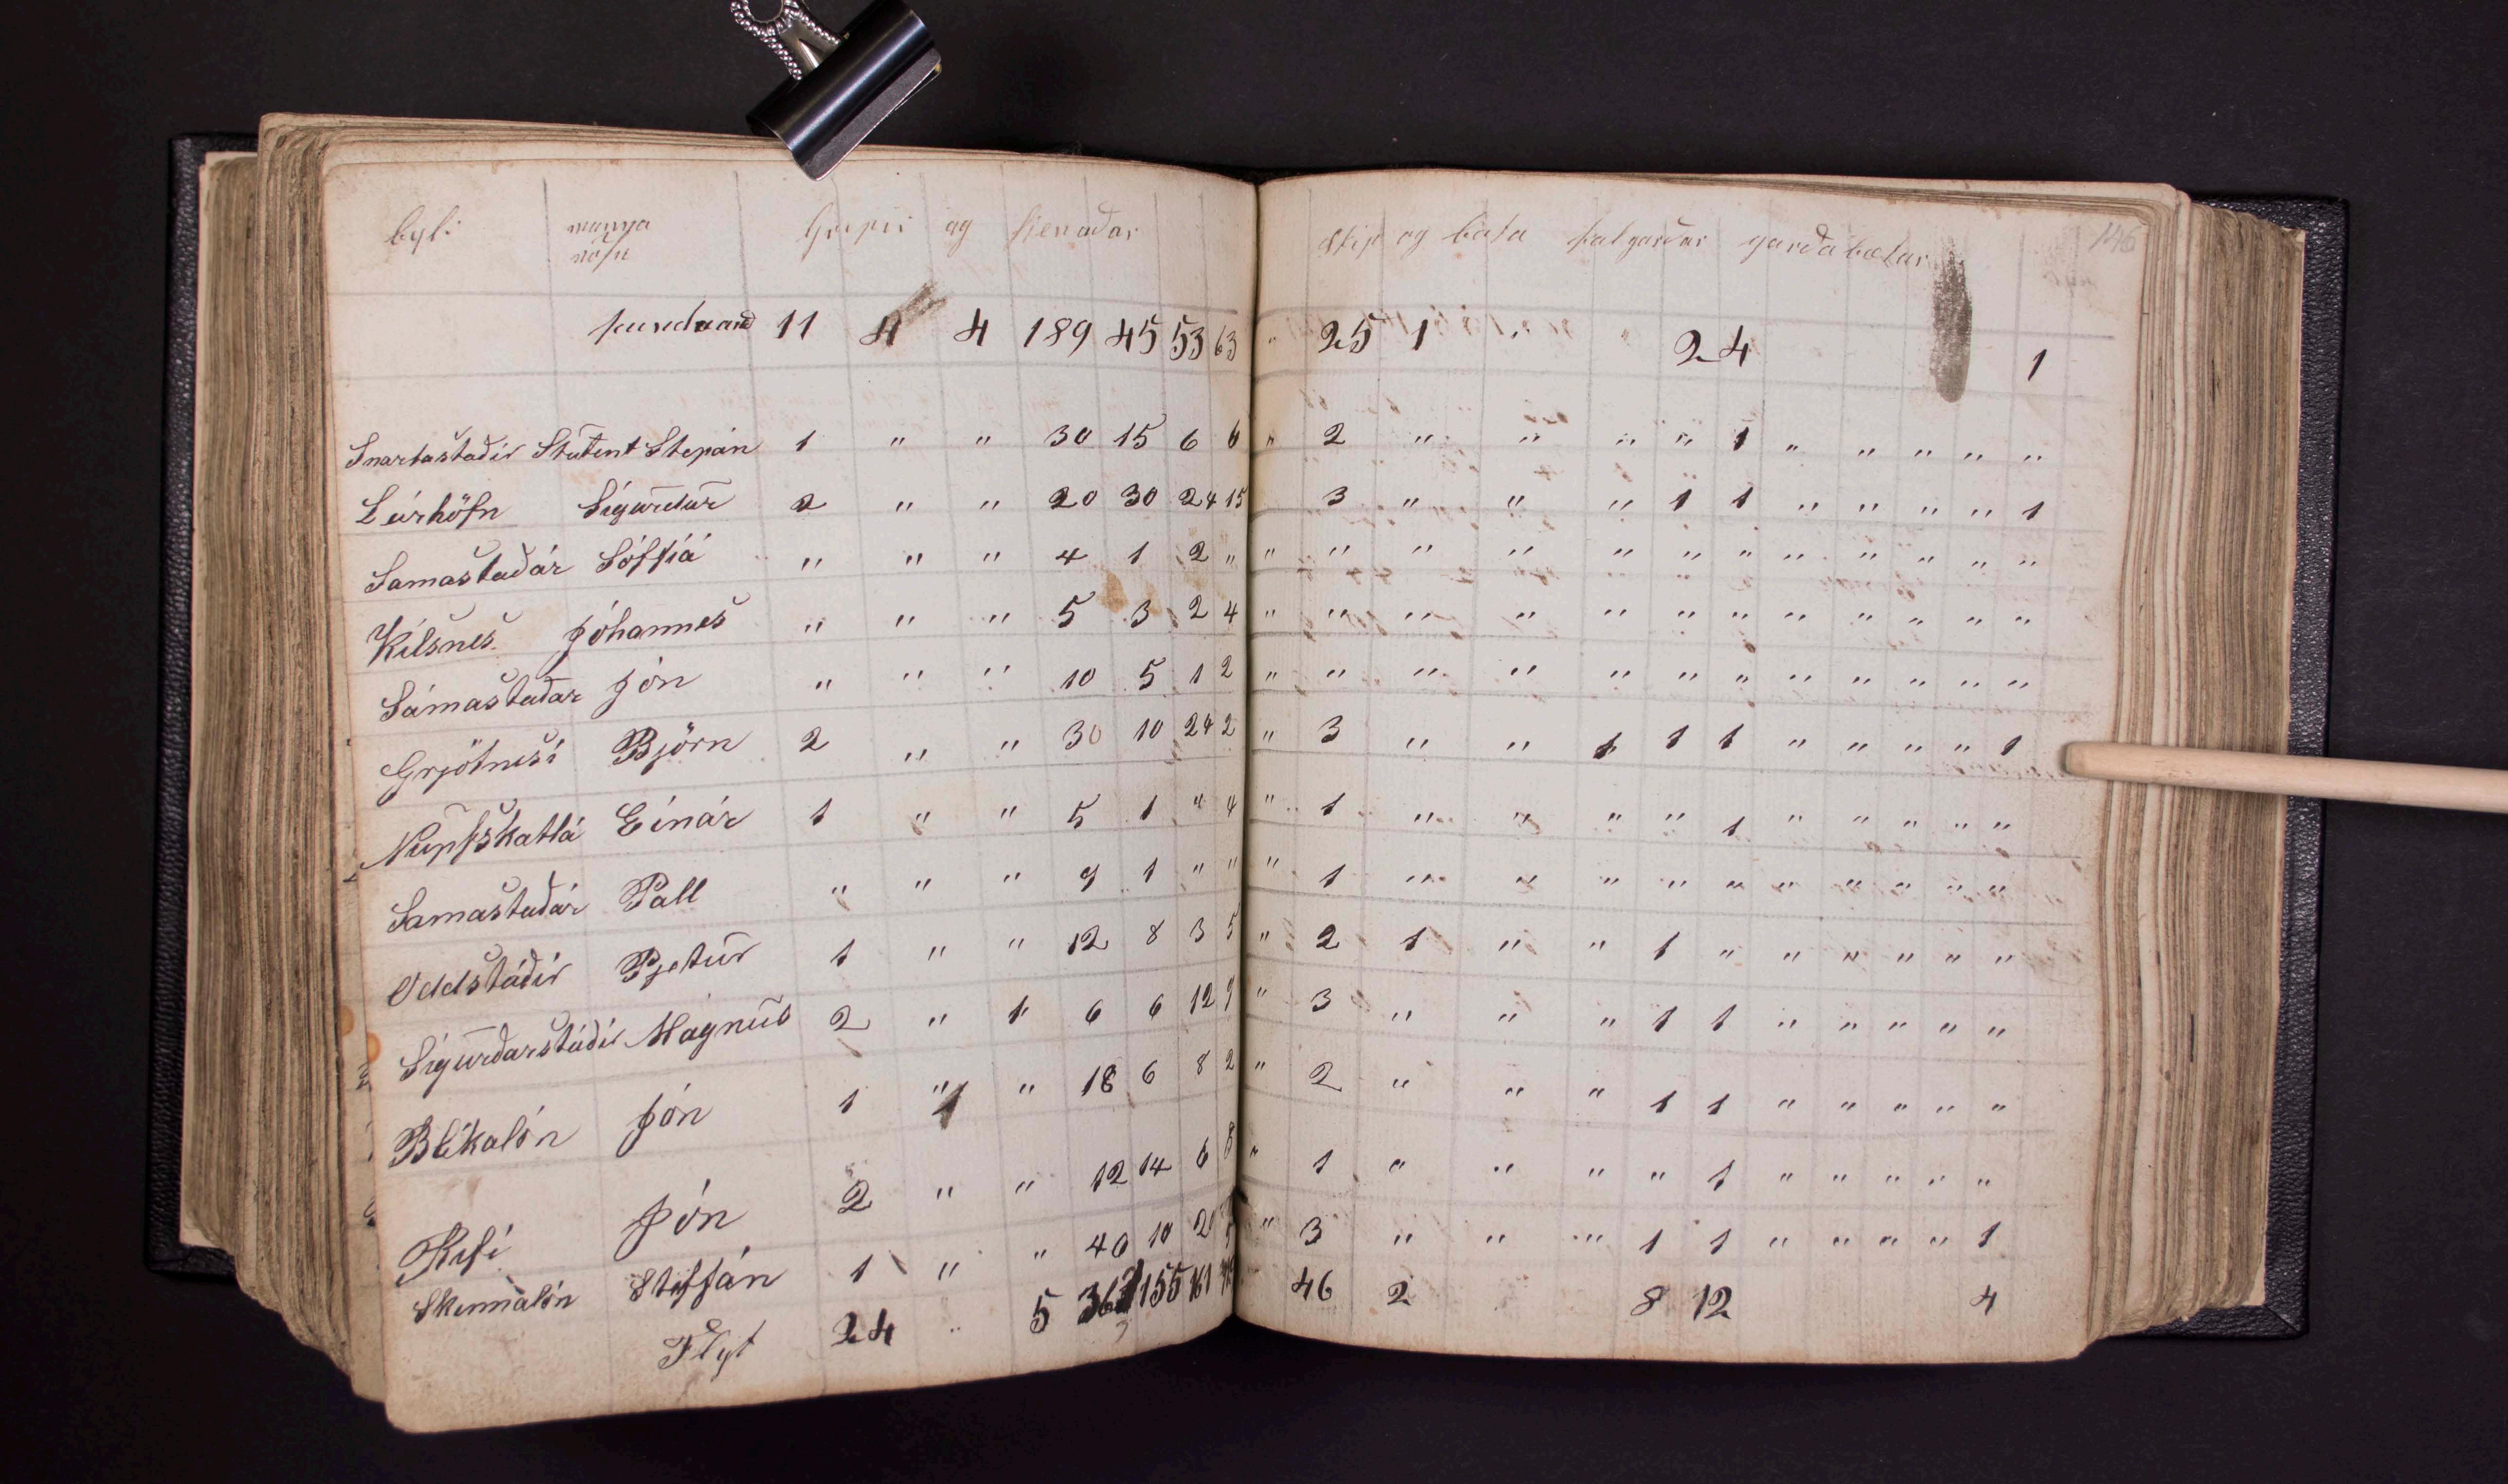 býli manna Gripir og fjenaðar Skip og báta kalgarðar garðabætur 146
nöfn
11 4 4 189 45 53 63 " 25 1 " " 2 4 1
Snartastaðir Stútent Stepán 1 " " 30 15 6 6 " 2 " " " " 1 " " " " "
Leirhöfn Sígurdur 2 " " 20 30 24 15 3 " " " 1 1 " " " " 1
Samastaðár Sóffiá " " " 4 1 2 " " " " " " " " " " " " "
Kílsnes Jóhannes " " " 5 3 2 4 " " " " " " " " " " " "
Sámastaðar Jón " " " 10 5 1 2 " " " " " " " " " " " "
Grjótnesi Björn 2 " " 30 10 24 2 " 3 " " 1 1 1 " " " " 1
Nupsskatlá Eínár 1 " " 5 1 " 4 " 1 " " " " 1 " " " " "
Samastaðár Páll " " " 9 1 " " " 1 " " " " " " " " " "
Oddstáðir Pjetur 1 " " 12 8 3 5 " 2 1 " " 1 " " " " " "
Sígurðarstáðir Magnús 2 " 1 6 6 12 9 " 3 " " " 1 1 " " " " "
Blikalón Jón 1 " " 18 6 8 2 " 2 " " " 1 1 " " " " "
Rifi Jón 2 " " 12 14 6 8 " 1 " " " " 1 " " " " "
Skinnalón Steffán 1 " " 40 10 20 5 " 3 " " " 1 1 " " " " 1
Flyt 24 " 5 363 155 161 46 2 8 12 4